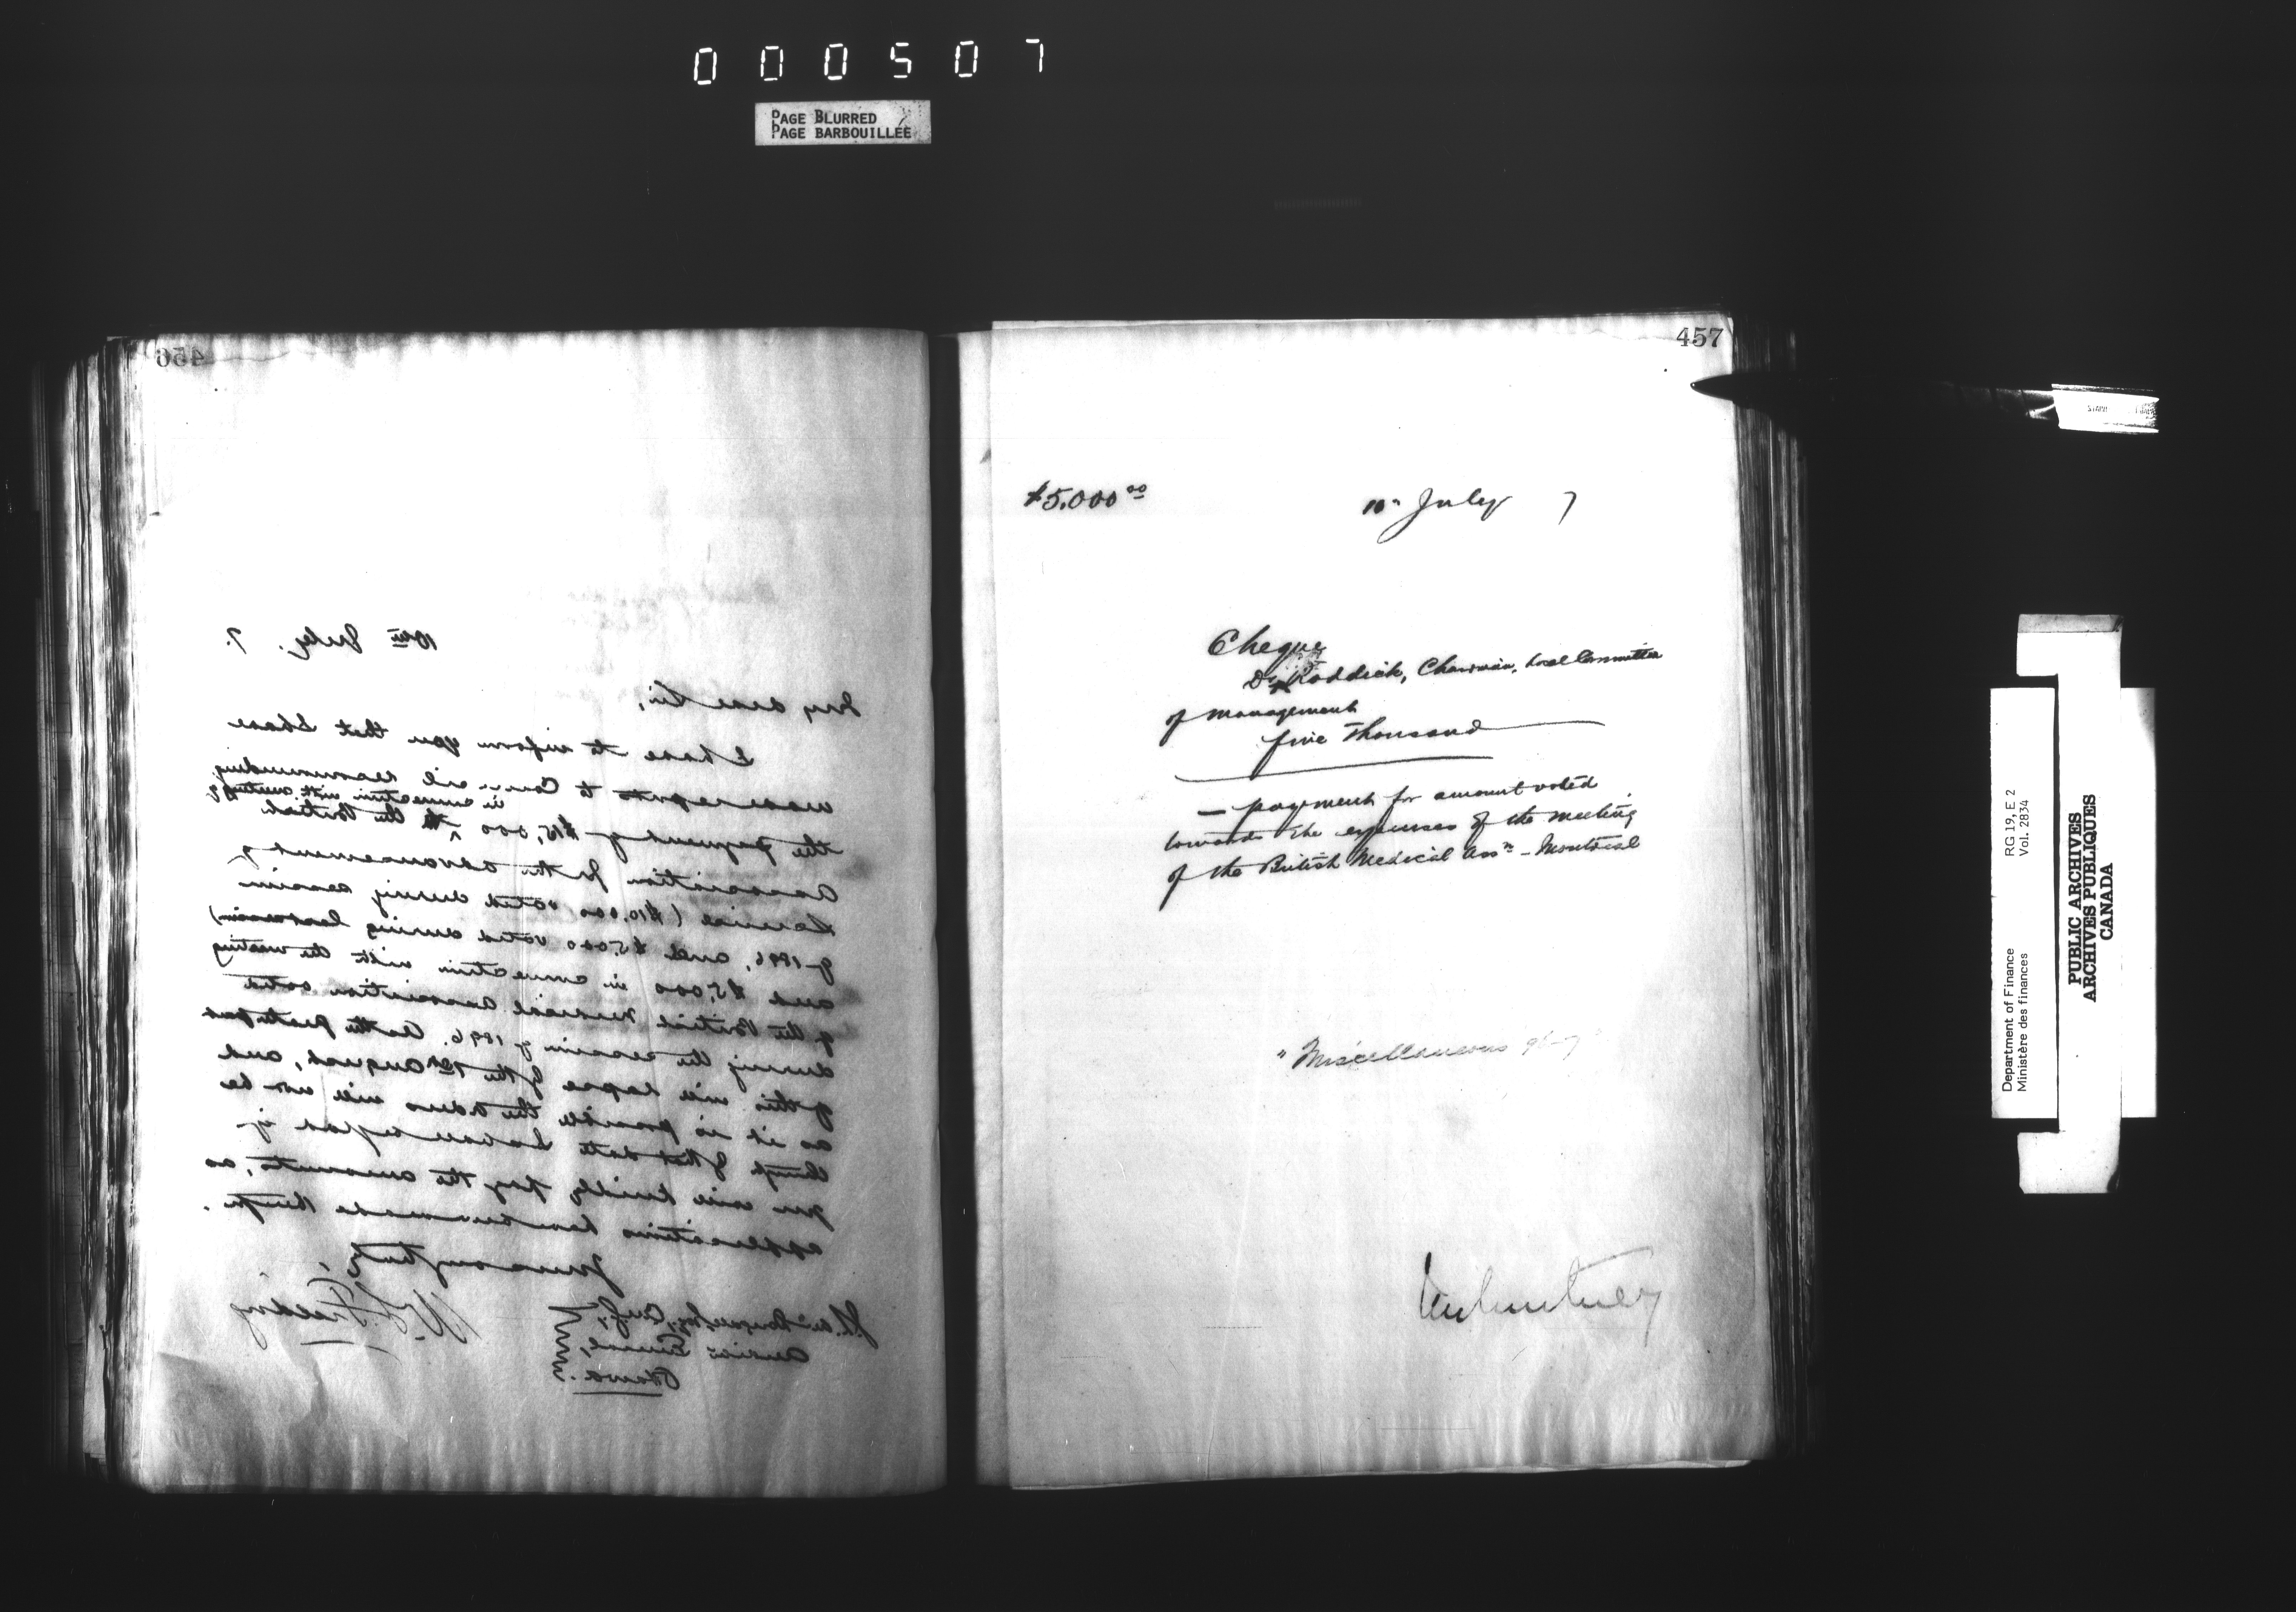 000507
PAGE BLURRED
PAGE BARBOUILLÉE
456
10th July. 7.
My dear Sir,
I have to inform you that I have
made reports to Council recommending
the payment of $15,000 to the British
in connection with meeting of
Association for the advancement of
Science ($10,000 voted during session
of 1896, and $5000 voted during last session)
and $5,000 in connection with the meeting
of the British Medical Association voted
during the session of 1896. As the greater part
of this will lapse by the 1st August, and
as it is possible the orders will not be
through by that date I shall be glad if
you will kindly pay the amounts, as
applications have been made therefor.
Yours very truly,
W. S. Fielding
J. L. McDougall, Esq., C.M.G.,
Auditor General,
Ottawa.
457
$5,000 00
10th July 7
Cheque
Dr Roddick, Chairman, Local Committee
of management
five thousand
— payment for amount voted
towards the expenses of the meeting
of the British Medical Assn - Montreal
"Miscellaneous 96-7"
J M Courtney
Department of Finance RG 19, E 2
Ministère des finances Vol. 2834
PUBLIC ARCHIVES
ARCHIVES PUBLIQUES
CANADA